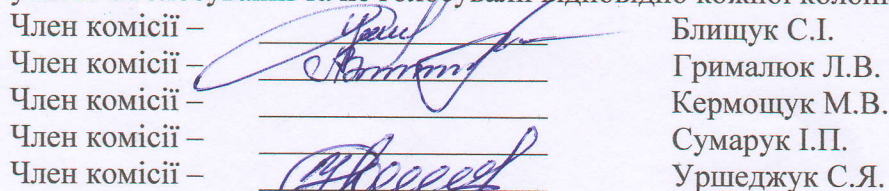 Член комісії – Блищук С.І.
Член комісії – Грималюк Л.В.
Член комісії – Кермощук М.В.
Член комісії – Сумарук І.П.
Член комісії – Уршеджук С.Я.